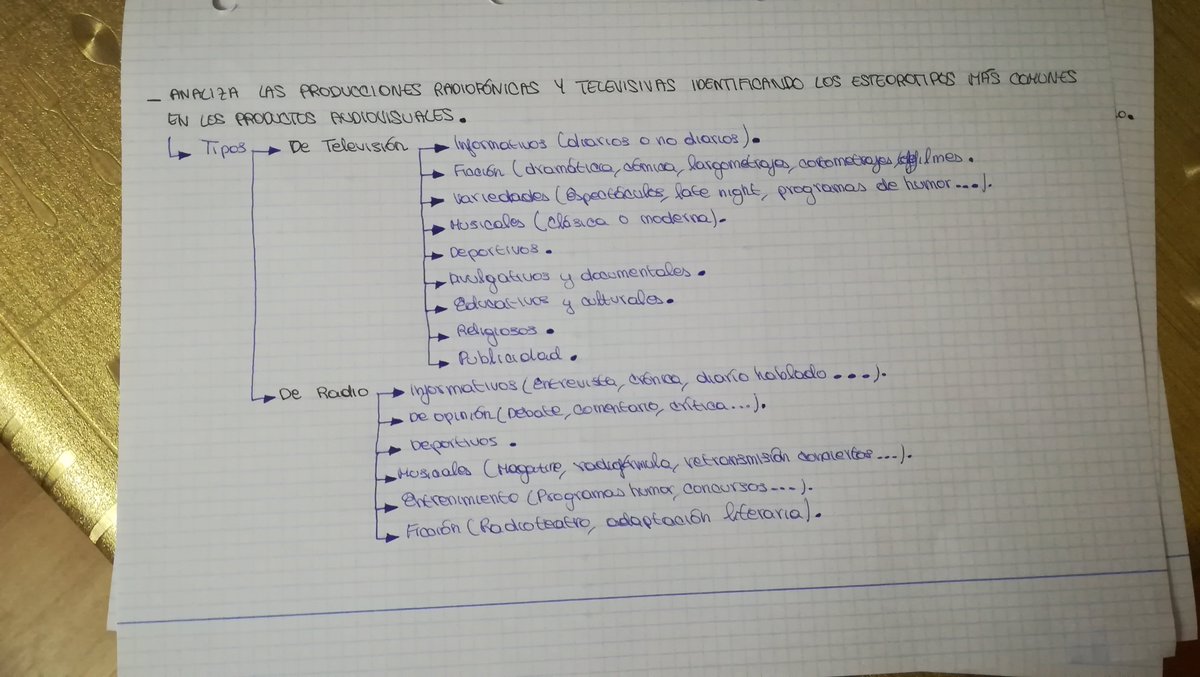 - ANALIZA LAS PRODUCCIONES RADIOFÓNICAS Y TELEVISIVAS IDENTIFICANDO LOS ESTEOROTIPOS MÁS COMUNES
EN LOS PRODUCTOS AUDIOVISUALES.
Tipos De Televisión Informativos (diarios o no diarios).
Ficción (dramática, cómica, largometrajes, cortometrajes, filmes.
Variedades (Espectáculos, late night, programas de humor...).
Musicales (clásica o moderna).
Deportivos.
Divulgativos y documentales.
Educativos y culturales.
Religiosos.
Publicidad.
De Radio Informativos (Entrevista, crónica, diario hablado ...).
De opinión (Debate, comentario, crítica...).
Deportivos.
Musicales (radiofórmula, retransmisión conciertos...).
Entrenimiento (Programas humor, concursos...).
Ficción (Radioteatro, adaptación literaria).